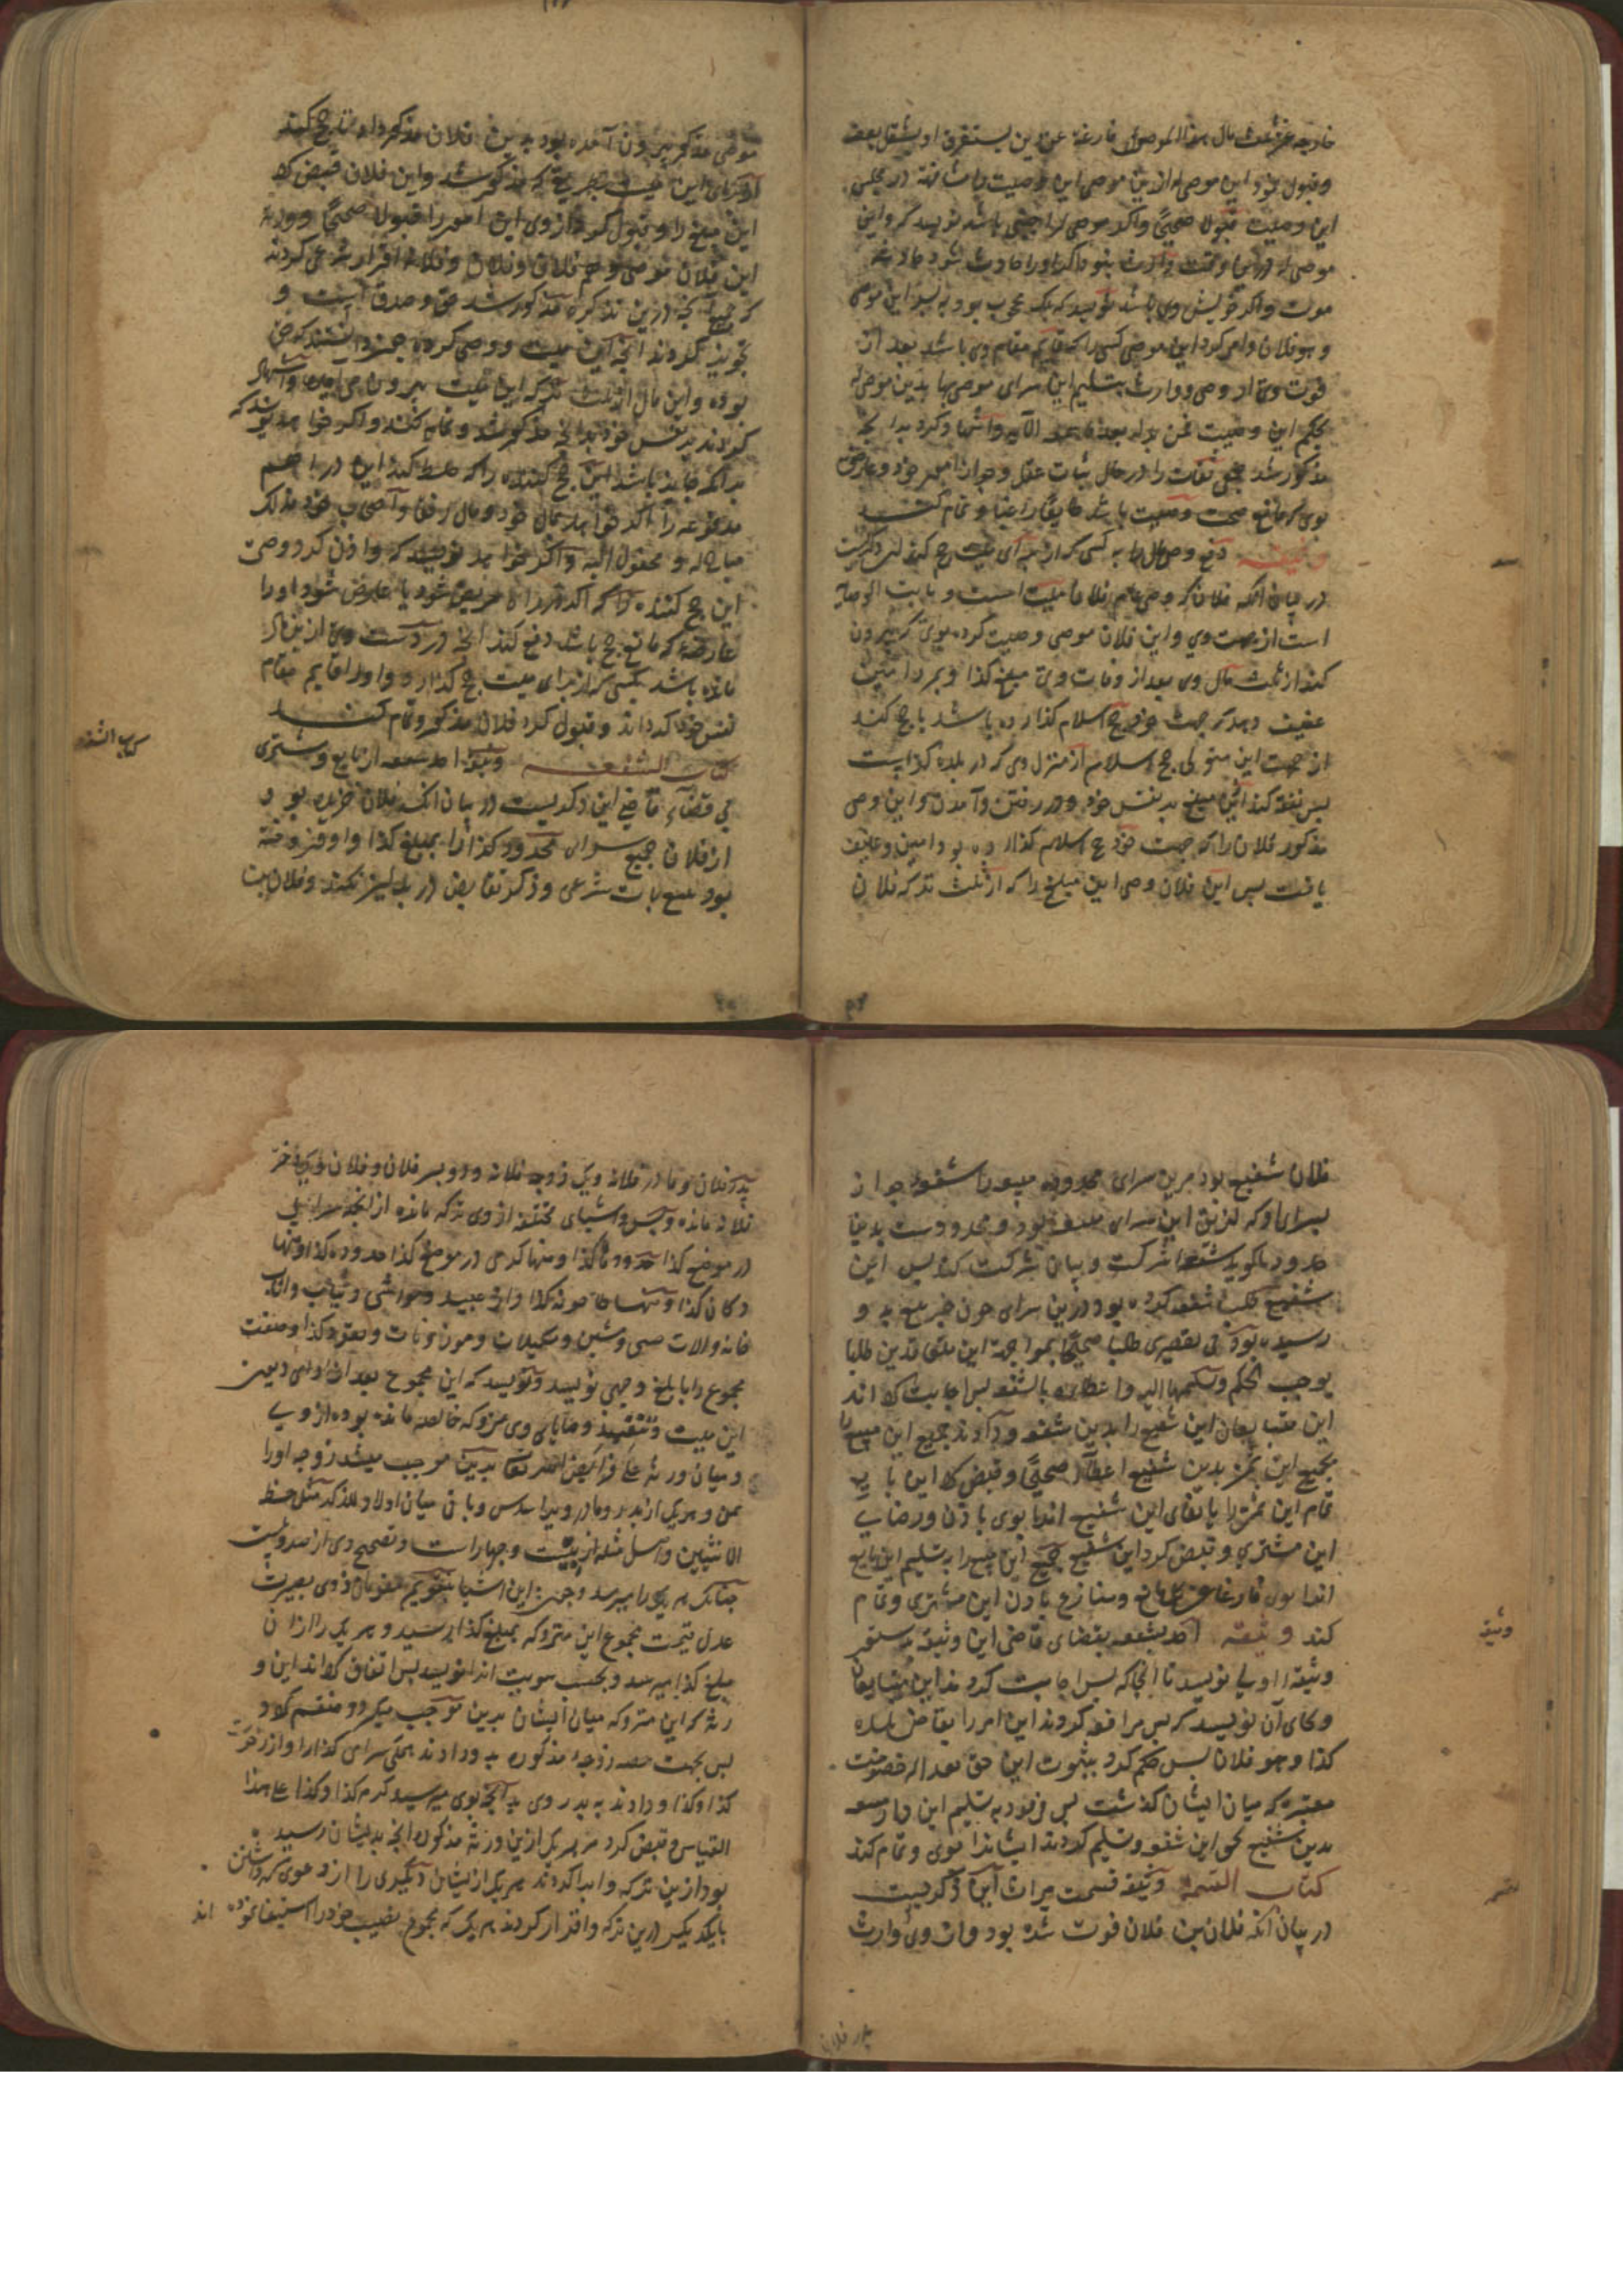 خارجه عن ثلث مال هذا الموصی فارغة عن دین یستغرق او یشغل بعضه
وقبول کرد این موصی له ازین موصی این وصیت را مشافهة در مجلس
این وصیت قبولا صحیحا واگر موصی له اجنبی باشد نویسد که واین
موصی له درین وقت وارث بنود اگر اورا حادث شود حادثه
موت واگر خویش وی باشد نویسد که یک محجوب بود به پسر این موصی
وهو فلان وامر کرد این موصی کسی را که قایم مقام وی باشد بعد از
فوت وی از وصی ووارث بتسلیم این سرای موصی بها بدین موصی له
بحکم این وصیت فمن بدله بعد ما سمعه الآیه واشهاد کرد بدانچه
مذکور شد جمعی ثقات را در حال ثبات عقل وجواز امر خود وعارضه
نبوی که مانع صحت وصیت باشد طایعا راغبا وتمام کند
وثیقه دفع وصی مال را به کسی که از برای میت حج کند این ذکریست
در بیان آنکه فلان که وصی فلان میت است وثابت الوصایه
است از جهت وی واین فلان موصی وصیت کرده بوی که بیرون
کند از ثلث مال وی بعد از وفات وی مبلغ کذا وبمرد امین
عفیف دهد که جهت خود حج اسلام گذارده باشد تا حج کند
از جهت این متوفی حج اسلام از منزل وی که در بلده کذاست
پس نفقه کند این مبلغ بر نفس خود ودر رفتن وآمدن واین وصی
مذکور فلان را که جهت خود حج اسلام گذارده بود امین وعفیف
یافت پس این فلان وصی این مبلغ را که از ثلث ترکه فلان
موصی مذکور بیرون آمده بود بدین فلان مذکور داد تا حج کند
از برای این میت بطریقی که مذکور شد واین فلان قبض کرد
این مبلغ را وقبول کرد از وی این امر را قبولا صحیحا وورثه
این فلان موصی وهم فلان وفلان وفلانه اقرار شرعی کردند
که جمیع آنچه درین تذکره مذکور شد حق وصدق است و
تجویز کردند آنچه این میت ووصی کرده
بوده واین مال از ثلث ترکه این میت بیرون می آید واشهاد
کردند بر نفس خود بدانچه مذکور شد وتمام کند واگر خواهد نویسد که
بدانکه جایز باشد این حج کننده را که خلط کند این دراهم
مدفوعه را اگر خواهد بمال خود ومال رفقا واصحاب خود مذلک
مباح له ومفوض الیه واگر خواهد نویسد که واذن کرد وصی
این حج کننده را که اگر در راه مریض شود یا عارض شود اورا
عارضه که مانع حج باشد دفع کند آنچه در دست وی ازین مال
مانده باشد بکسی که از برای میت حج گذارد واورا قایم مقام
نفس خود گرداند وقبول کرد فلان مذکور وتمام کند
کتاب الشفعه وثیقه اخذ شفعه از بایع ومشتری
بی قضای قاضی این ذکریست در بیان آنکه فلان خریده بود
از فلان جمیع سرای محدود کذا را بمبلغ کذا واو فروخته
بود بیع بات شرعی وذکر تقابض در بدلین کند وفلان بن
کتاب الشفعه
فلان شفیع بود مرین سرای محدوده مبیعه را بشفعه جوار
بسرای که لزیق این سرای مبیعه بود ومحدود است بدین
حدود یا گوید بشفعه شرکت وبیان شرکت کند پس این
شفیع طلب شفعه کرده بود درین سرای چون خبر بیع به وی
رسیده بود بی تقصیری طلبا صحیحا بمواجهه این متعاقدین طلبا
یوجب الحکم وتسلیمها الیه واعطاءه بالشفعه پس اجابت کرده اند
این متبایعان این شفیع را بدین شفعه ودادند جمیع این مبیع را
بجمیع این ثمن بدین شفیع اعطاء صحیحا وقبض کرد این بایع
تمام این ثمن را بایفای این شفیع اندا بوی باذن ورضای
این مشتری وقبض کرد این شفیع جمیع این مبیع را بتسلیم این بایع
اندا بوی فارغا عن کل مانع ومنازع باذن این مشتری وتمام
کند وثیقه اخذ شفعه بقضای قاضی این وثیقه بدستور
وثیقه اولی نویسد تا آنجا که پس اجابت کردند این متبایعان
وبجای آن نویسد که پس مرافعه کردند این امر را بقاضی بلده
کذا وهو فلان پس حکم کرد بثبوت این حق بعد از خصومت
معتبره که میان ایشان گذشت پس فرمود به تسلیم این دار مبیعه
بدین شفیع بحق این شفعه وتسلیم کردند ایشان اندا بوی وتمام کند
کتاب القسمة وثیقه قسمت میراث این ذکریست
در بیان آنکه فلان بن فلان فوت شده بود واز وی وارث
پدر فلان
وثیقه
پدر فلان ومادر فلانه ویک زوجه فلانه ودو پسر فلان وفلان ویک دختر
فلانه مانده واشیای مختلفه از وی ترکه مانده از آنجمله سرای
در موضع کذا حدودها کذا ومنها کرمی در موضع کذا حدوده کذا ومنها
دکان کذا ومنها طاحونه کذا واز عبید ومواشی وثیاب واثاث
خانه والات مسی ومکیلات وموزونات ونقود کذا وصفت
مجموع را بابلغ وجهی نویسد وگوید که این مجموع بعد از ادای دیون
این میت وتنفیذ وصایای وی متروکه خالصه مانده بوده از وی
ومیان ورثه علی فرایض الله تعالی بدین موجب میشد زوجه اورا
ثمن وهر یک از پدر ومادر ویرا سدس وباقی میان اولاد للذکر مثل حظ
الانثیین واصل مسئله از بیست وچهار است وتصحیح وی از صد وبیست
عدل قیمت مجموع این متروکه بمبلغ کذا رسید وهر یک را ازان
مبلغ کذا میرسد وبحسب سویت اندا نویسد پس اتفاق کرده اند این و
رثه که این متروکه میان ایشان بدین موجب میگردد منقسم کرد
پس بجهت حصه زوجه مذکوره به وی دادند بحق سرای کذا را واز زمرت
کذا وکذا ودادند به پدر وی بدانچه بوی میرسید کرم کذا وکذا علی هذا
القیاس وقبض کرد هر یک ازین ورثه مذکوره آنچه بدیشان رسیده
بود ازین ترکه وابرا کردند هر یک ازیشان دیگری را از دعوی که داشتن
بایکدیگر درین ترکه واقرار کردند هر یک که مجموع نصیب خود را استیفا نموده اند